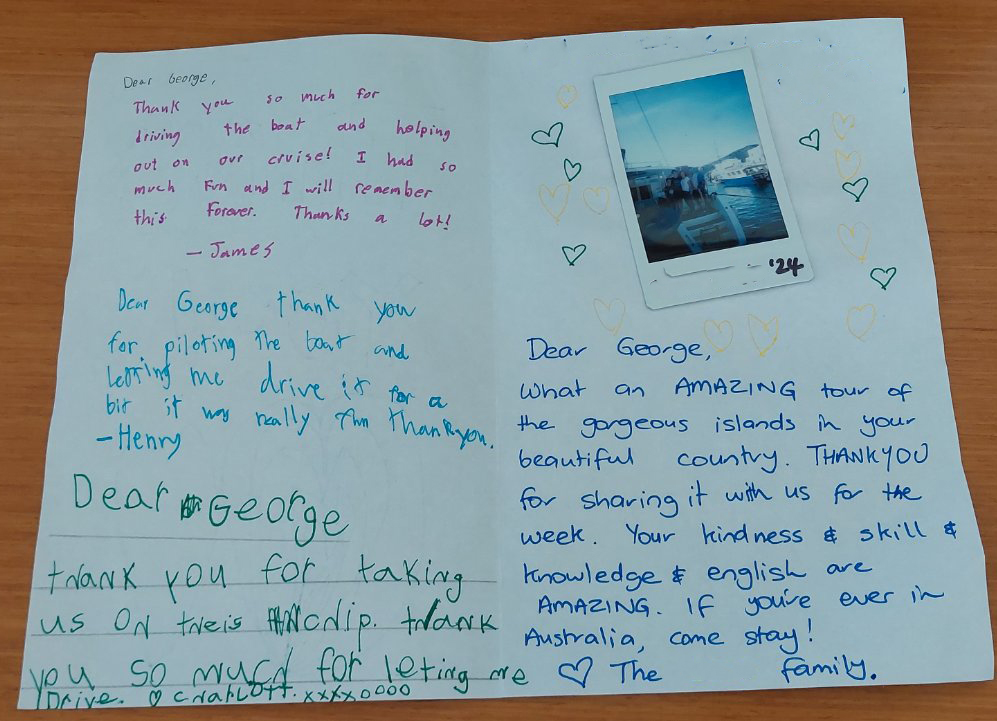 Dear George,
Thank you so much for
driving the boat and helping
out on our cruise! I had so
much Fun and I will remember
this Forever. Thanks a lot!
- James
Dear George thank you
for piloting the boat and
letting me drive it for a
bit it was really fun thankyou.
- Henry
Dear George
thank you for taking
us on theis ship. thank
you so much for leting me
Drive. ♡ CharLOtt. xxxxoooo
'24
Dear George,
What an AMAZING tour of
the gorgeous islands in your
beautiful country. THANKYOU
for sharing it with us for the
week. Your kindness & skill &
knowledge & english are
AMAZING. If you're ever in
Australia, come stay!
♡ The family.